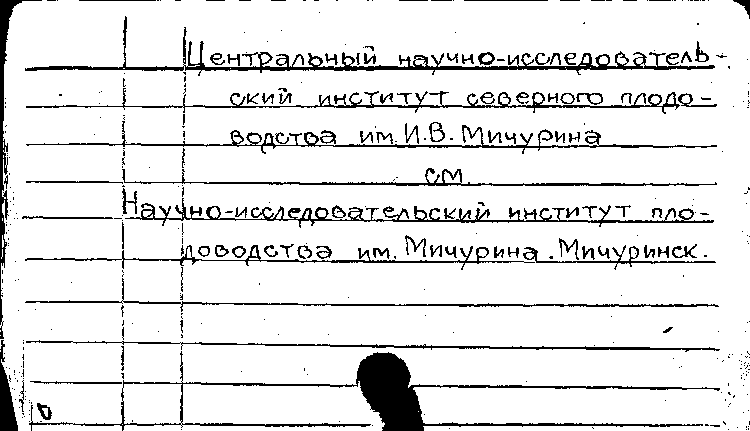 Центральный научно-исследователь-
ский институт северного плодо-
водства им. И.В. Мичурина
см.
Научно-исследовательский институт пло-
доводства им. Мичурина. Мичуринск.